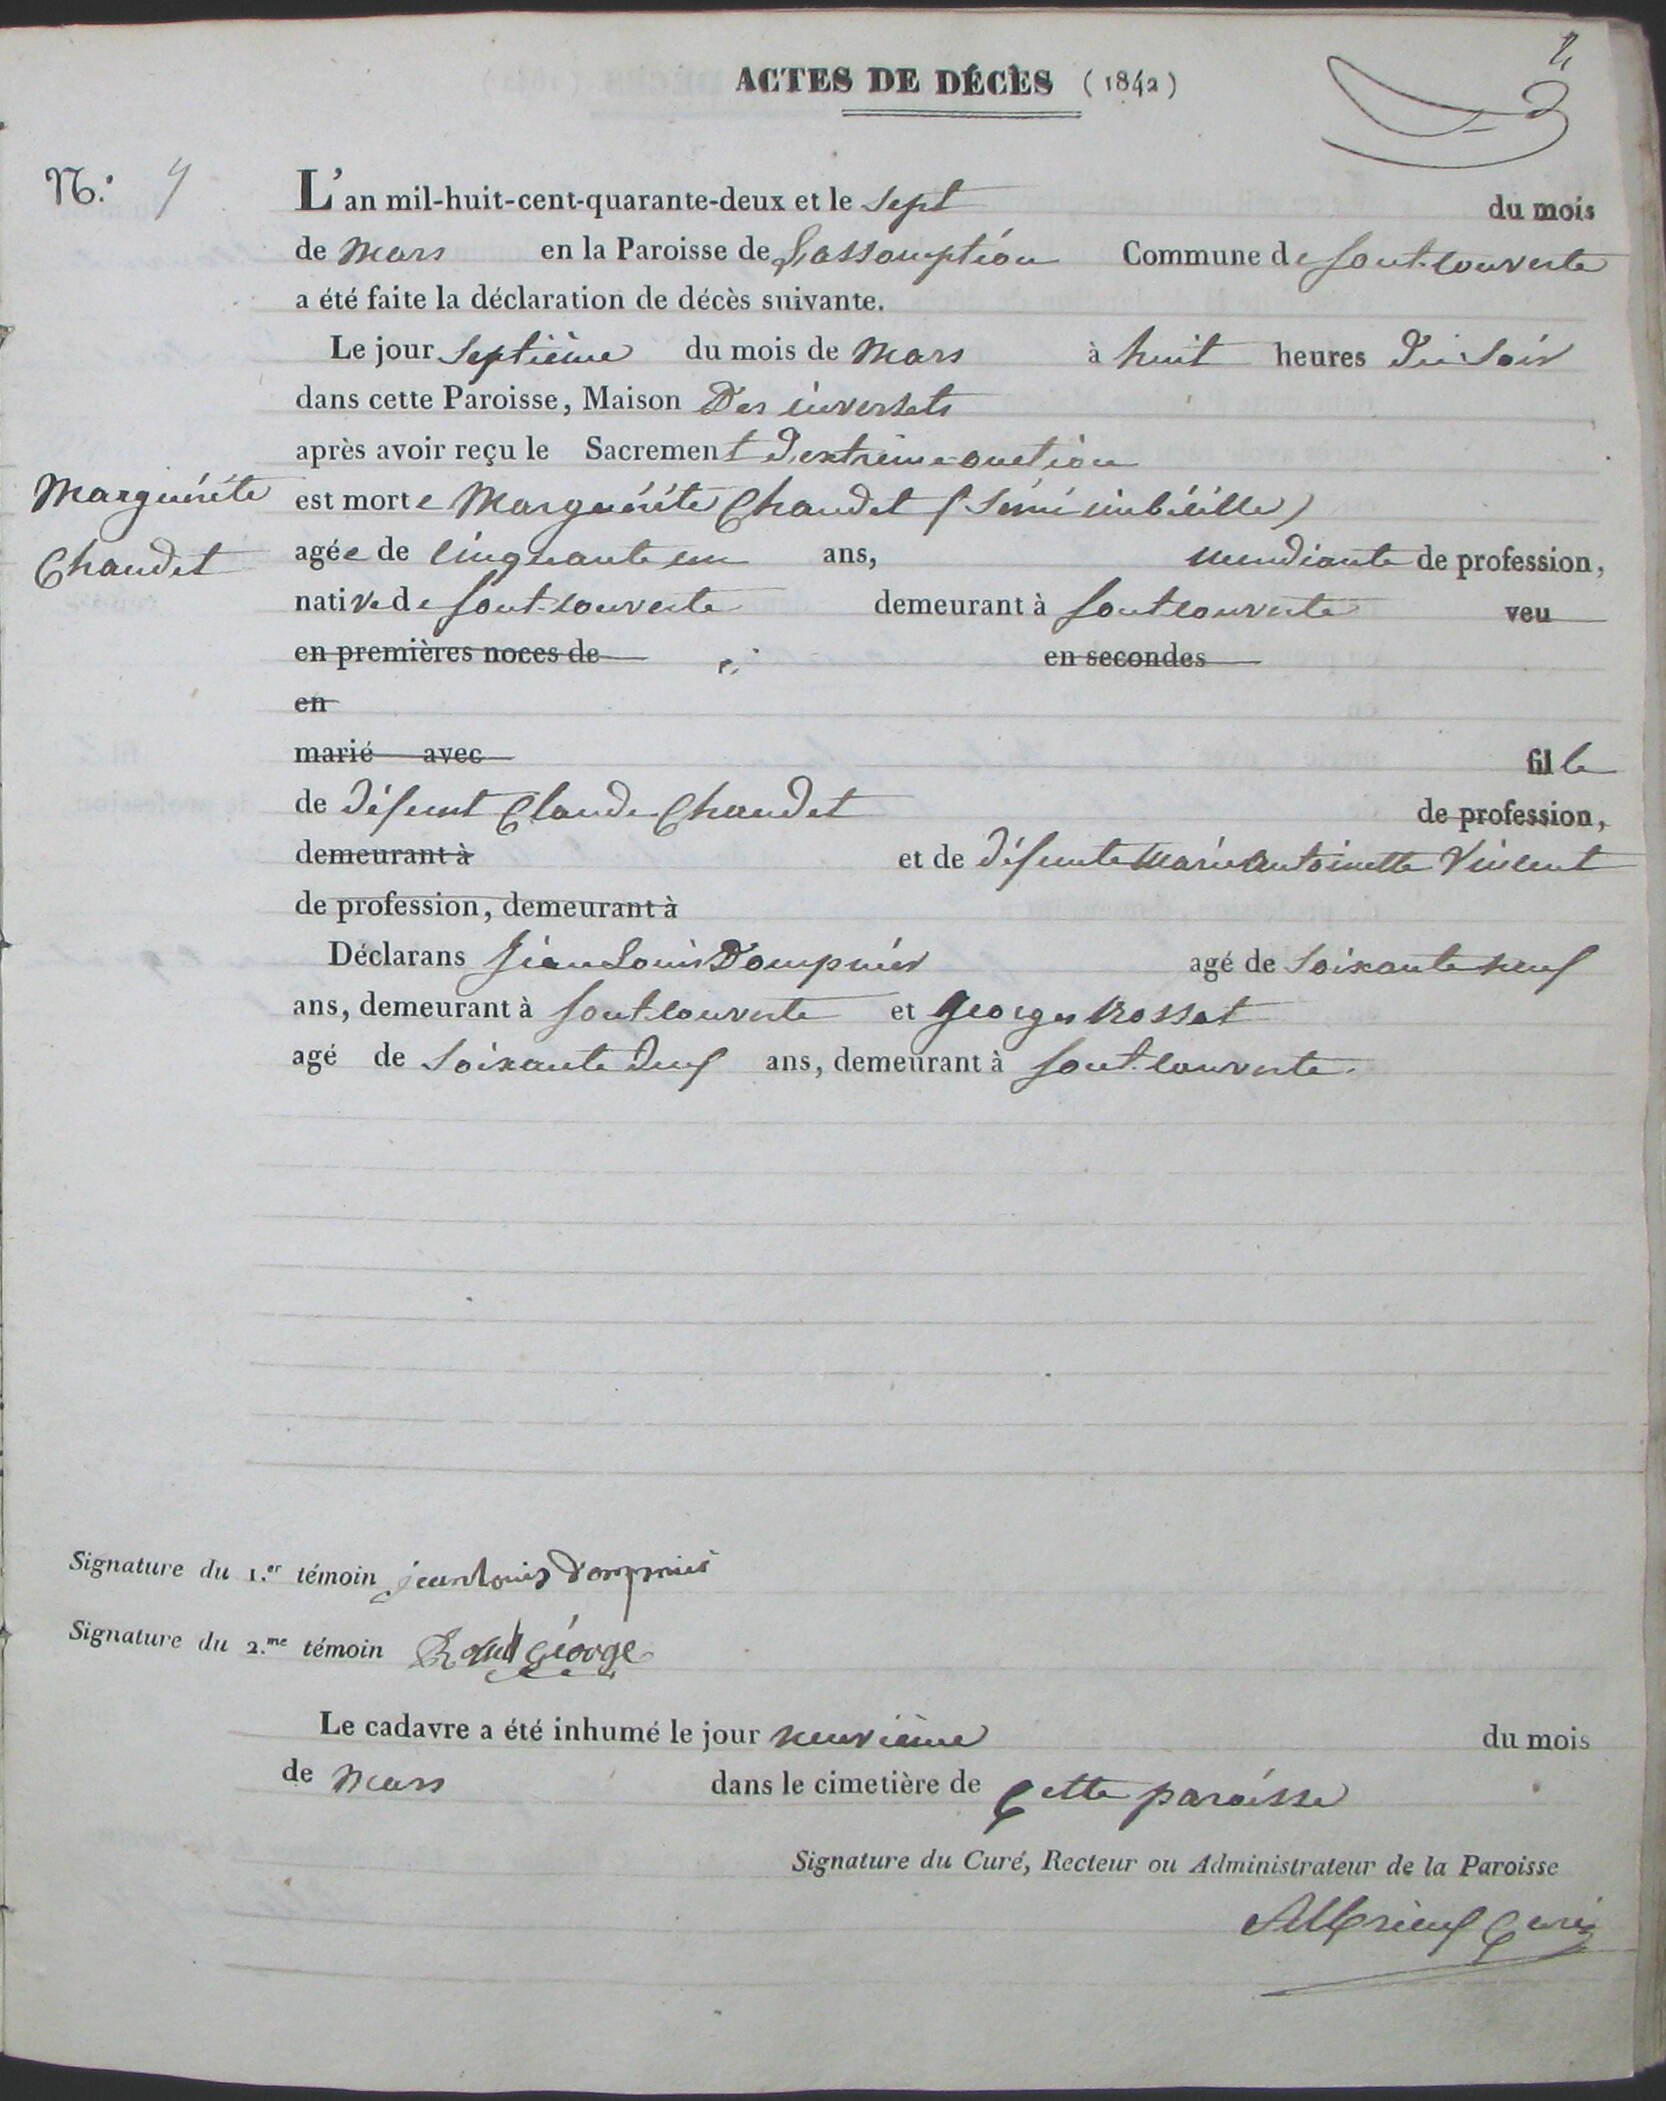 ACTES DE DÉCÈS (1842)
N.° 4
L'an mil-huit-cent-quarante-deux et le sept du mois
de Mars en la Paroisse de Lassomption Commune de fontcouverte
a été faite la déclaration de décès suivante.
Le jour septième du mois de Mars à huit heures Du Soir
dans cette Paroisse, Maison Des inversets
après avoir reçu le Sacrement D'extrême onction
Marguérite
Chaudet
est morte Marguérite Chaudet (sémi imbécille)
agée de cinquante un ans, mendiante de profession,
native de fontcouverte demeurant à fontcouverte veu
en premières noces de en secondes
en
marié avec fille
de Défunt Claude Chaudet de profession,
demeurant à et de Défunte Marie Antoinette Vincent
de profession, demeurant à
Déclarans Jean Louis Dompnier agé de Soixante neuf
ans, demeurant à fontcouverte et Georges Rossat
agé de Soixante Deux ans, demeurant à fontcouverte.
Signature du 1.er témoin jean Louis Dompnier
Signature du 2.me témoin George
Le cadavre a été inhumé le jour neuvième du mois
de Mars dans le cimetière de Cette paroisse
Signature du Curé, Recteur ou Administrateur de la Paroisse
Curé